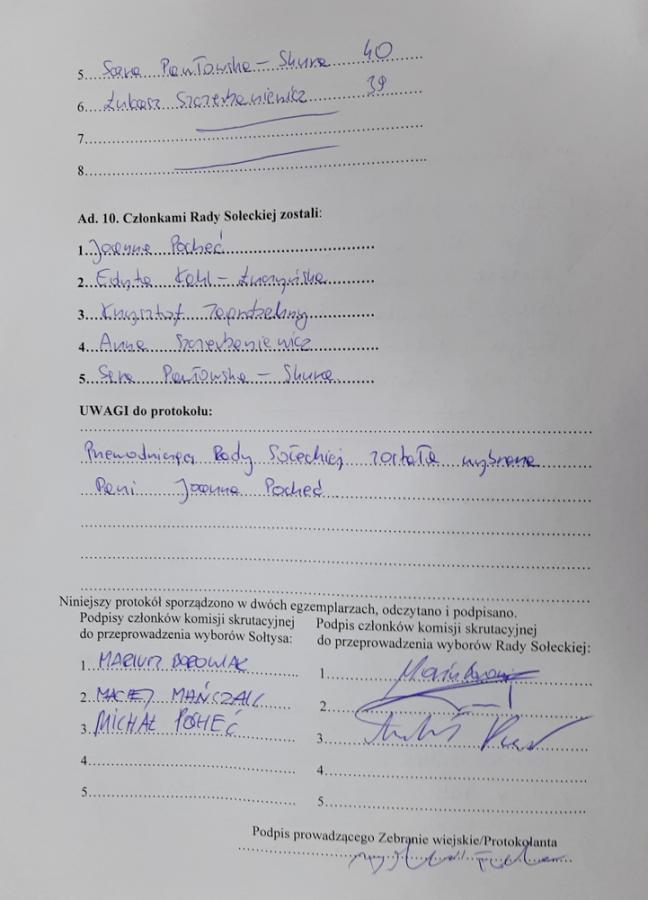 5. Sara Pawłowska - Skura 40
6. Łukasz Szczerbaniewicz 39
7.
8.
Ad. 10. Członkami Rady Sołeckiej zostali:
1. Joanna Pocheć
2. Edyta Kohl -
3. Krzysztof
4. Anna Szczerbaniewicz
5. Sara Pawłowska - Skura
UWAGI do protokołu:
Przewodniczącą Rady Sołeckiej została wybrana
Pani Joanna Pocheć
Niniejszy protokół sporządzono w dwóch egzemplarzach, odczytano i podpisano.
Podpisy członków komisji skrutacyjnej
do przeprowadzenia wyborów Sołtysa:
1. MARIUSZ BOROWIAK
2. MACIEJ MAŃCZAK
3. MICHAŁ POCHEĆ
4.
5.
Podpis członków komisji skrutacyjnej
do przeprowadzenia wyborów Rady Sołeckiej:
1.
2.
3.
4.
5.
Podpis prowadzącego Zebranie wiejskie/Protokolanta